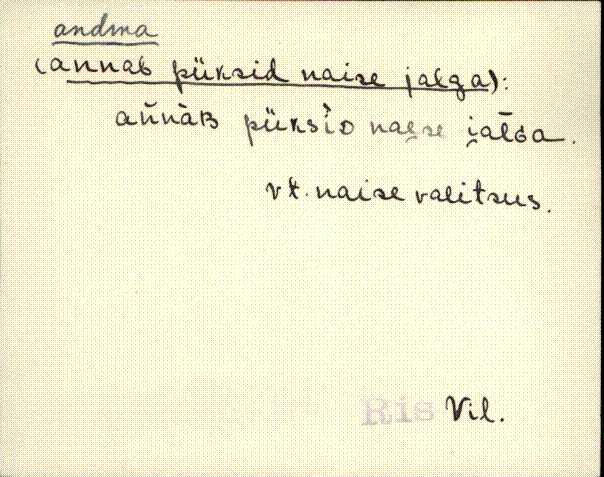 andma
(annab püksid naise jalga):
an̆nàB püksìD naes̬e i̭al̄Ga.
vt. naise valitsus.
Ris Vil.